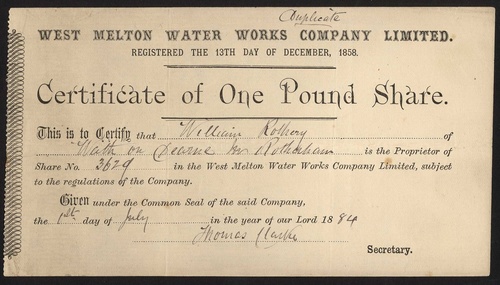 Duplicate
WEST MELTON WATER WORKS COMPANY LIMITED.
REGISTERED THE 13TH DAY OF DECEMBER, 1858.
Certificate of One Pound Share.
This is to Certify that William Rothery of
Wath on Dearne nr Rotherham is the Proprietor of
Share No. 3629 in the West Melton Water Works Company Limited, subject
to the regulations of the Company.
Given under the Common Seal of the said Company,
the 1st day of July in the year of our Lord 1884
Thomas Clarke
Secretary.